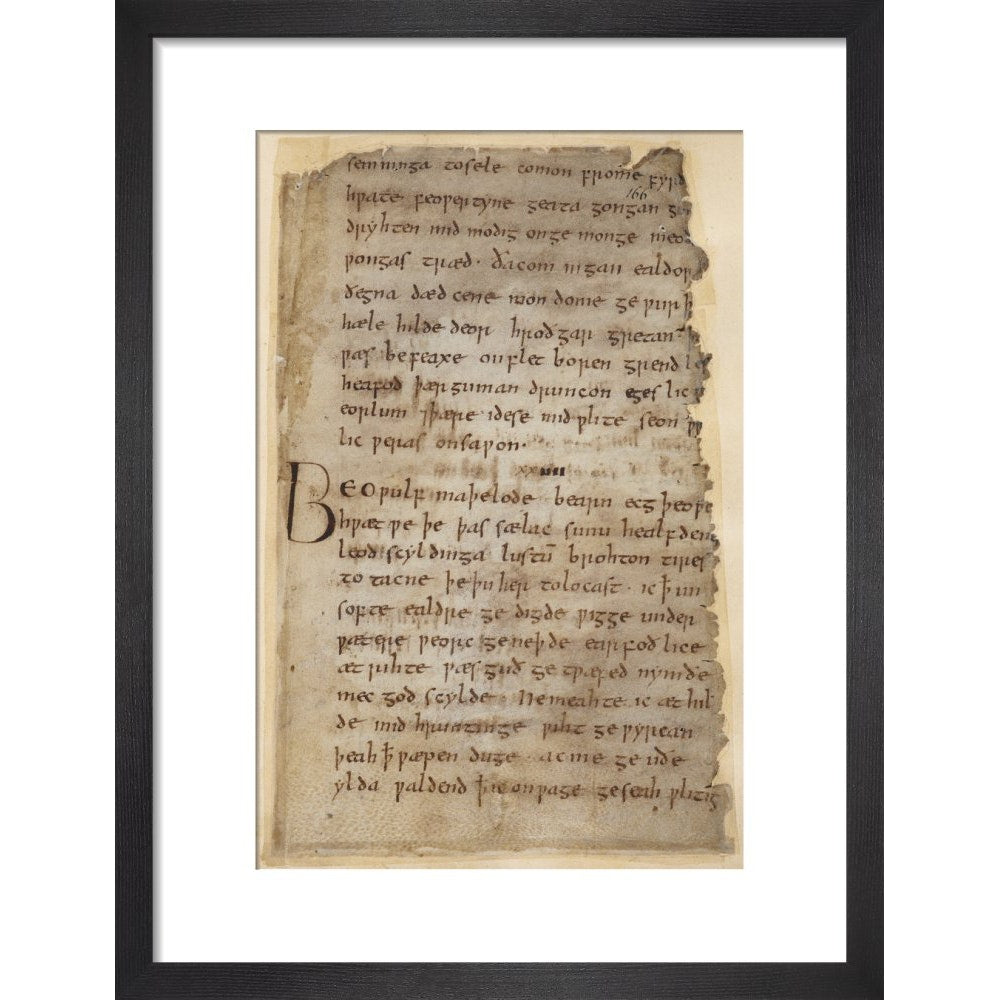 semninga to sele comon frome fyrd
166
hƿate feoƿertyne geata gongan
dryhten mid modig on ge monge meo
ƿongas træd· ða com in gan ealdor
ðegna dæd cene mon dome ge ƿurþ
hæle hilde deor hroðgar gretan·
ƿæs be feaxe on flet boren grendles
heafod þær guman druncon egeslic
eorlum ⁊ þære idese mid ƿlite seon
lic ƿeras onsaƿon·
xxiiii
BEOƿulf maþelode bearn ecg þeoƿes
hƿæt ƿe þe þas sælac sunu healfdenes
leod scyldinga lustū brohton tires
to tacne þe þu her to locast· ic ꝥ un
softe ealdre ge digde ƿigge under
ƿætere ƿeorc ge neþde earfoð lice
æt rihte ƿæs guð ge tƿæfed nymðe
mec god scylde· Ne meahte ic æt hil
de mid hruntinge ƿiht ge ƿyrcan
þeah ꝥ ƿæpen duge· ac me ge uðe
ylda ƿaldend ꝥ ic on ƿage geseah ƿlitig